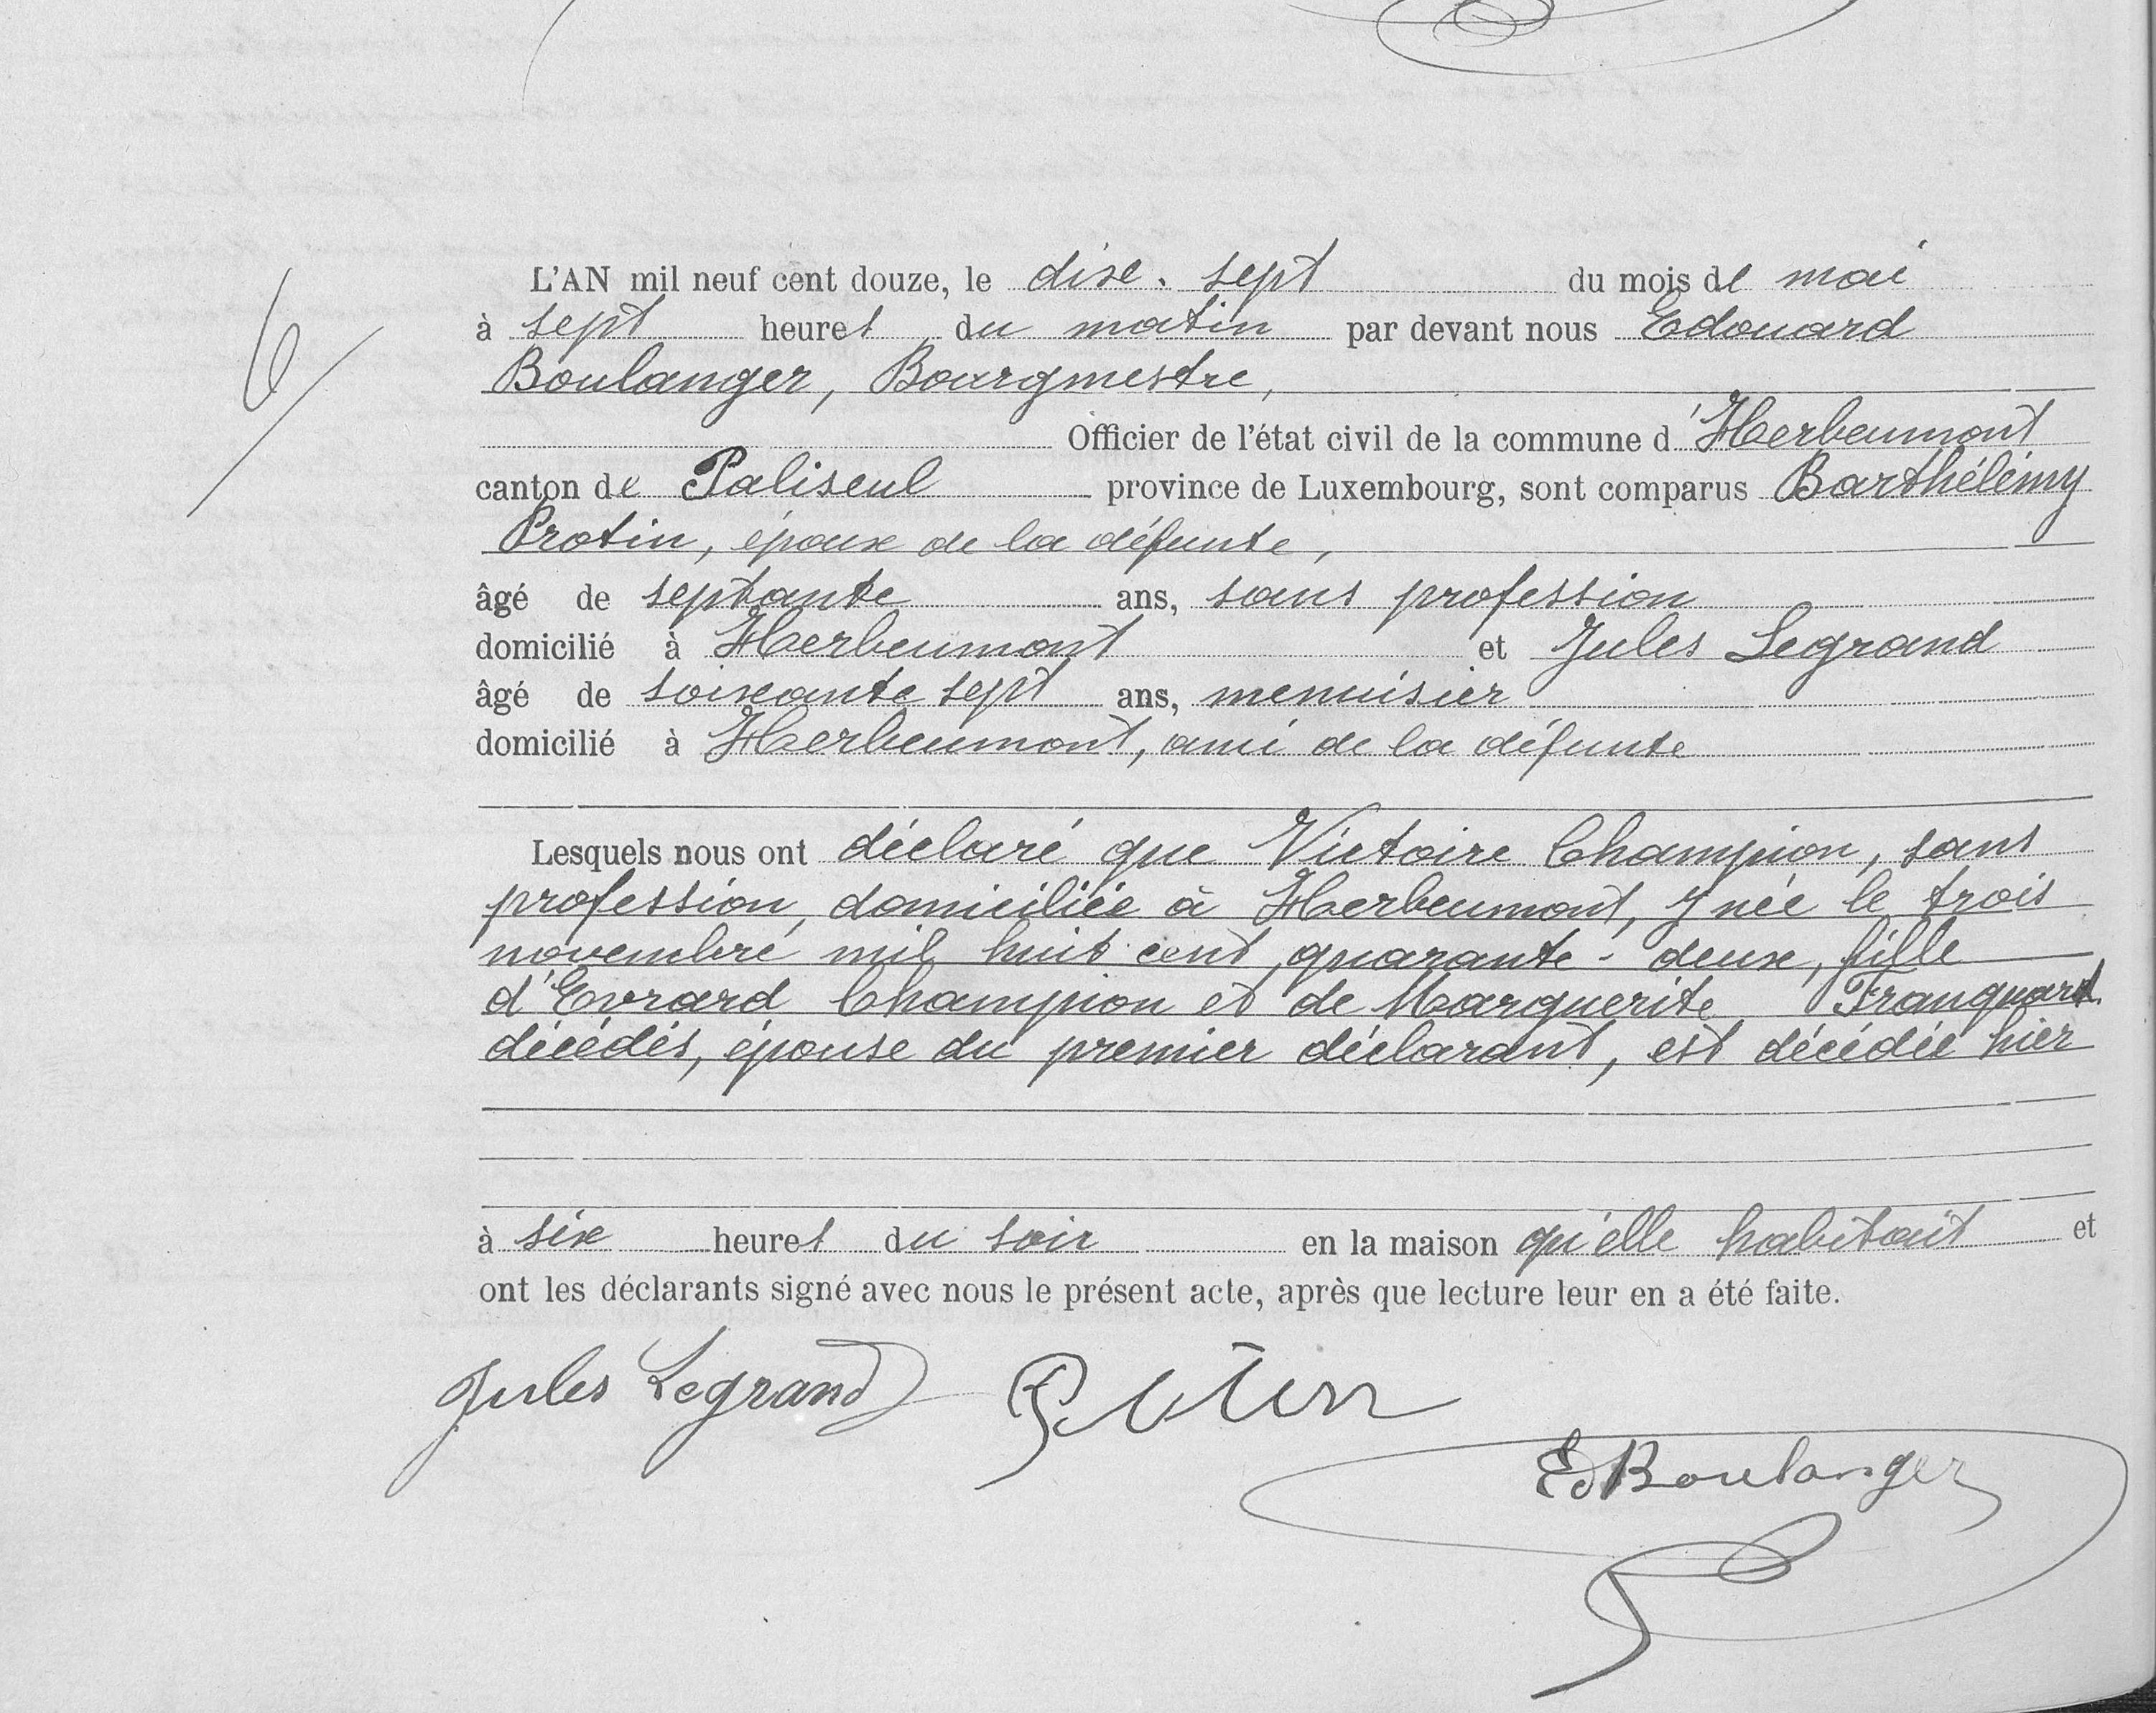 6/
L'AN mil neuf cent douze, le dix-sept du mois de mai
à sept heures du matin par devant nous Edouard
Boulanger, Bourgmestre,
Officier de l'état civil de la commune d'Herbeumont
canton de Paliseul province de Luxembourg, sont comparus Barthélémy
Protin, époux de la défunte,
âgé de septante ans, sans profession
domicilié à Herbeumont et Jules Legrand
âgé de soixante sept ans, menuisier
domicilié à Herbeumont, ami de la défunte
Lesquels nous ont déclaré que Victoire Champion, sans
profession, domiciliée à Herbeumont, y née le trois
novembre mil huit cent quarante-deux, fille
d'Evrard Champion et de Marguerite Franquard
décédés, épouse du premier déclarant, est décédée hier
à six heures du soir en la maison qu'elle habitait et
ont les déclarants signé avec nous le présent acte, après que lecture leur en a été faite.
Jules Legrand Protin
Ed Boulanger